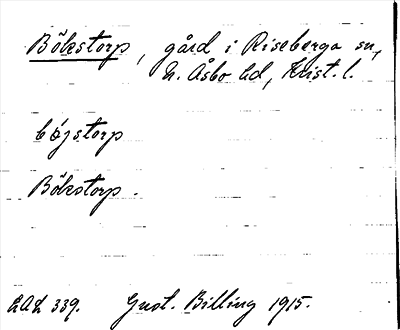 Bökstorp, gård i Riseberga sn,
N. Åsbo hd, Krist. l.
böjstorp
Bökstorp.
LAL 339. Gust. Billing 1915.